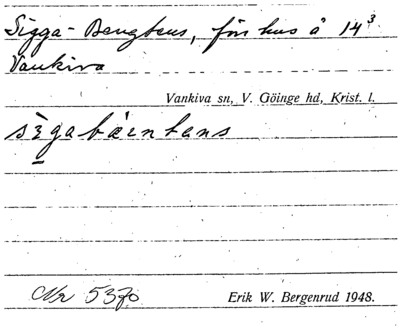 Sigga-Bengtens, förr hus å 14³
Vankiva
Vankiva sn, V. Göinge hd, Krist. l.
sègabάentans
Nr 5370
Erik W. Bergenrud 1948.